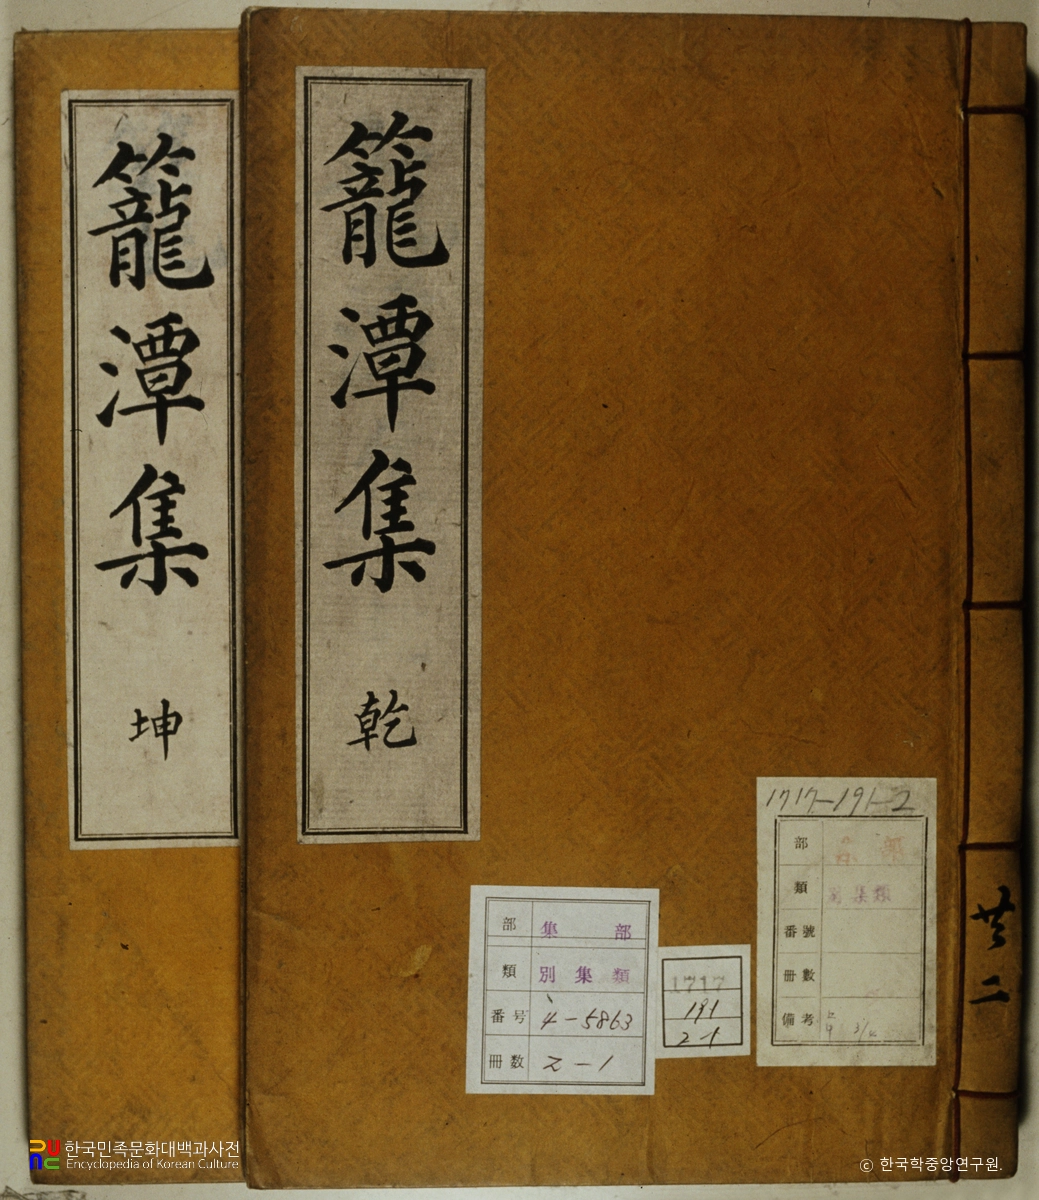 籠潭集
乾
籠潭集
坤
共二
1717-191-2
部
類 別集類
番號
冊數
備考
部 集部
類 別集類
番号 4-5863
冊数 2-1
1717
191
2-1
한국민족문화대백과사전
Encyclopedia of Korean Culture
© 한국학중앙연구원.